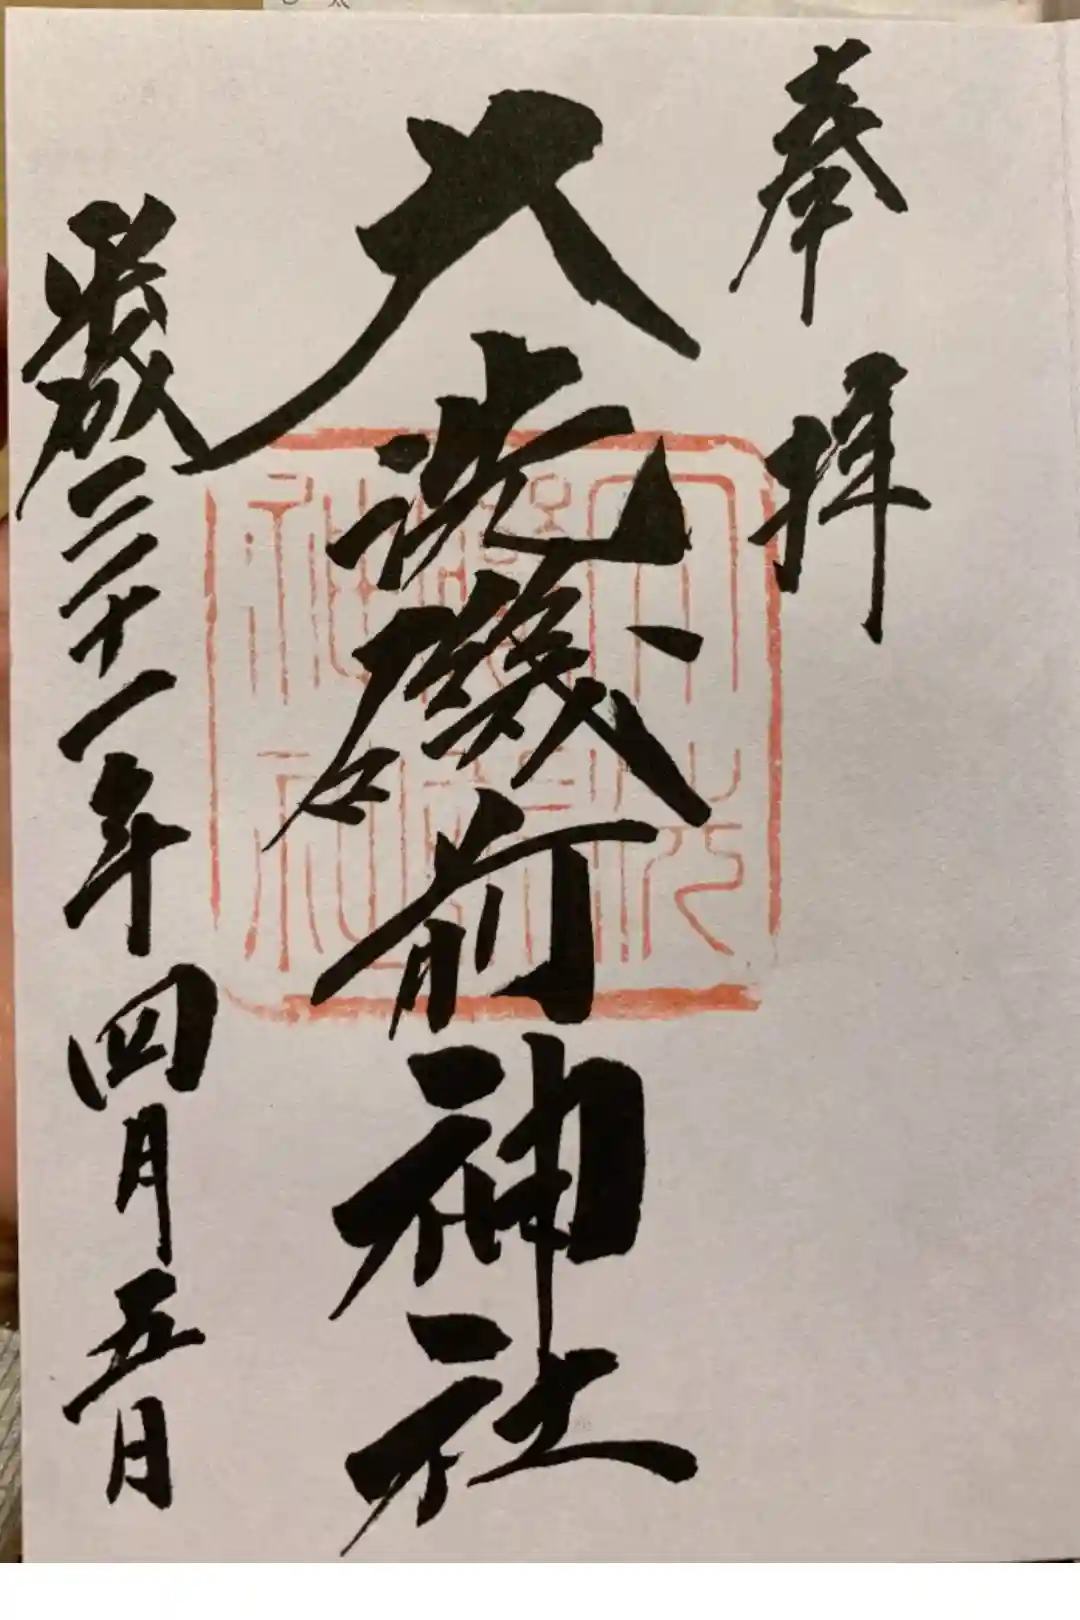 奉拝
大洗磯前神社
平成三十一年四月五日
大洗
磯前
神社